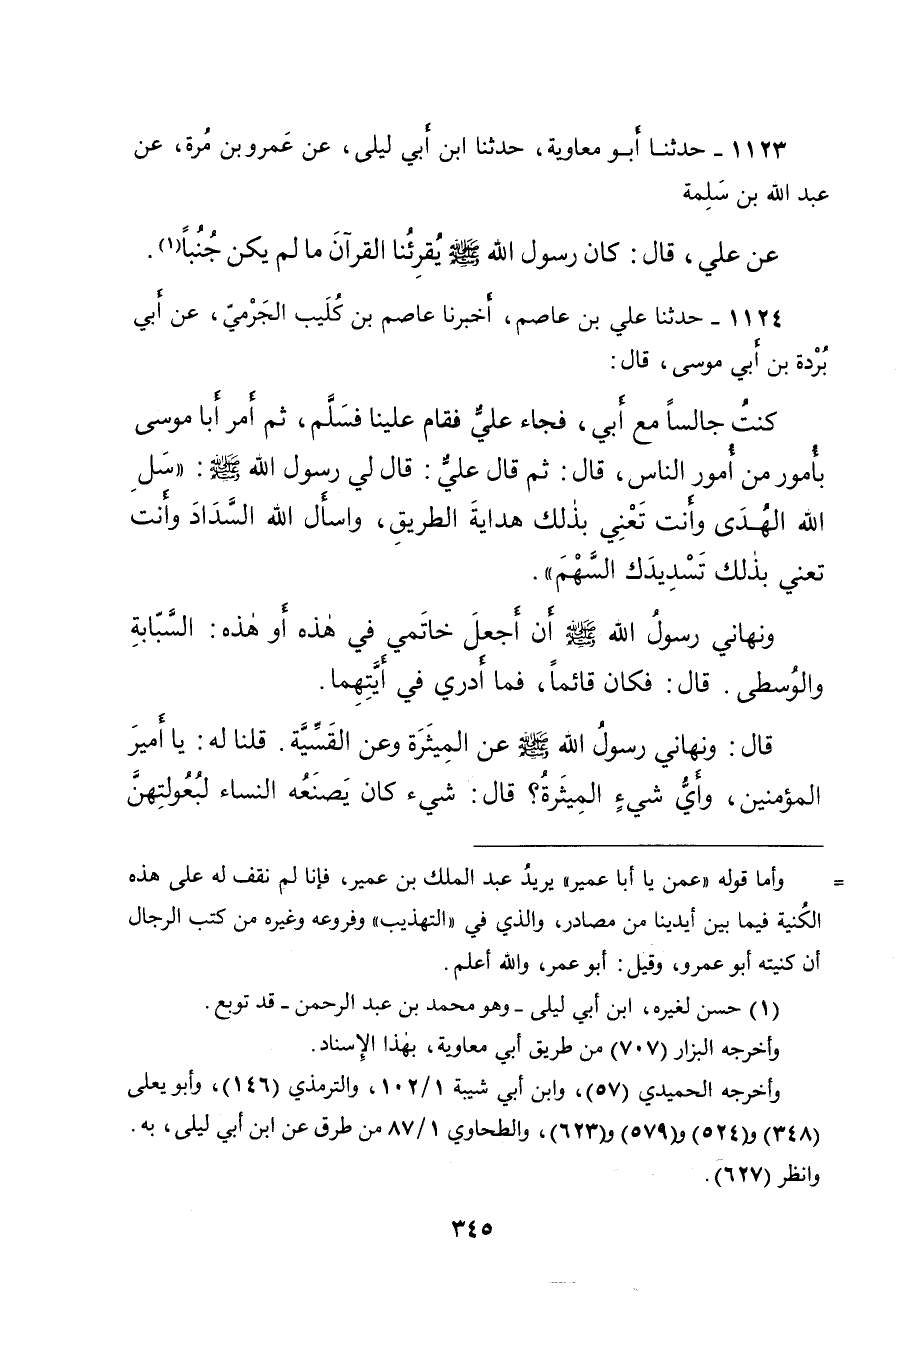 ١١٢٣ ـ حدثنا أَبو معاوية، حدثنا ابن أَبي ليلى، عن عَمرو بن مُرة، عن
عبد الله بن سَلِمة
عن علي، قال: كان رسول الله ﷺ يُقرِئُنا القرآنَ ما لم يكن جُنُباً(١).
١١٢٤ ـ حدثنا علي بن عاصم، أَخبرنا عاصم بن كُلَيب الجَرْميّ، عن أَبي
بُرْدة بن أَبي موسى، قال:
كنتُ جالساً مع أَبي، فجاء عليٌّ فقام علينا فسَلَّم، ثم أَمر أَبا موسى
بأُمور من أُمور الناس، قال: ثم قال عليٌّ: قال لي رسول الله ﷺ: «سَلِ
الله الهُدَى وأَنت تَعْنِي بذٰلك هدايةَ الطريقِ، واسأَل الله السَّدَادَ وأَنت
تعني بذٰلك تَسْدِيدَك السَّهْمَ».
ونهاني رسولُ الله ﷺ أَن أَجعلَ خاتَمي في هٰذه أَو هٰذه: السَّبّابةِ
والوُسطى. قال: فكان قائماً، فما أَدري في أَيَّتِهِما.
قال: ونهاني رسولُ الله ﷺ عن المِيثَرَة وعن القَسِّيَّة. قلنا له: يا أَميرَ
المؤمنين، وأَيُّ شيءٍ المِيثَرةُ؟ قال: شيء كان يَصنَعُه النساء لبُعُولتِهنَّ
= وأما قوله «عمن يا أبا عمير» يريدُ عبد الملك بن عمير، فإنا لم نقف له على هذه
الكُنية فيما بين أيدينا من مصادر، والذي في «التهذيب» وفروعه وغيره من كتب الرجال
أن كنيته أبو عمرو، وقيل: أبو عمر، والله أعلم.
(١) حسن لغيره، ابن أبي ليلى ـ وهو محمد بن عبد الرحمن ـ قد توبع.
وأخرجه البزار (٧٠٧) من طريق أبي معاوية، بهٰذا الإِسناد.
وأخرجه الحميدي (٥٧)، وابن أبي شيبة ١/١٠٢، والترمذي (١٤٦)، وأبو يعلى
(٣٤٨) و(٥٢٤) و(٥٧٩) و(٦٢٣)، والطحاوي ١/٨٧ من طرق عن ابن أبي ليلى، به.
وانظر (٦٢٧).
٣٤٥